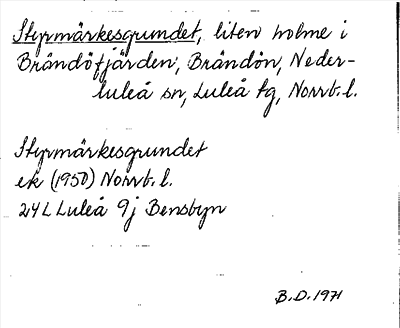 Styrmärkesgrundet, liten holme i
Brändöfjärden, Brändön, Neder-
luleå sn, Luleå tg, Norrb. l.
Styrmärkesgrundet
ek (1950) Norrb. l.
24L Luleå 9j Bensbyn
B.D. 1971